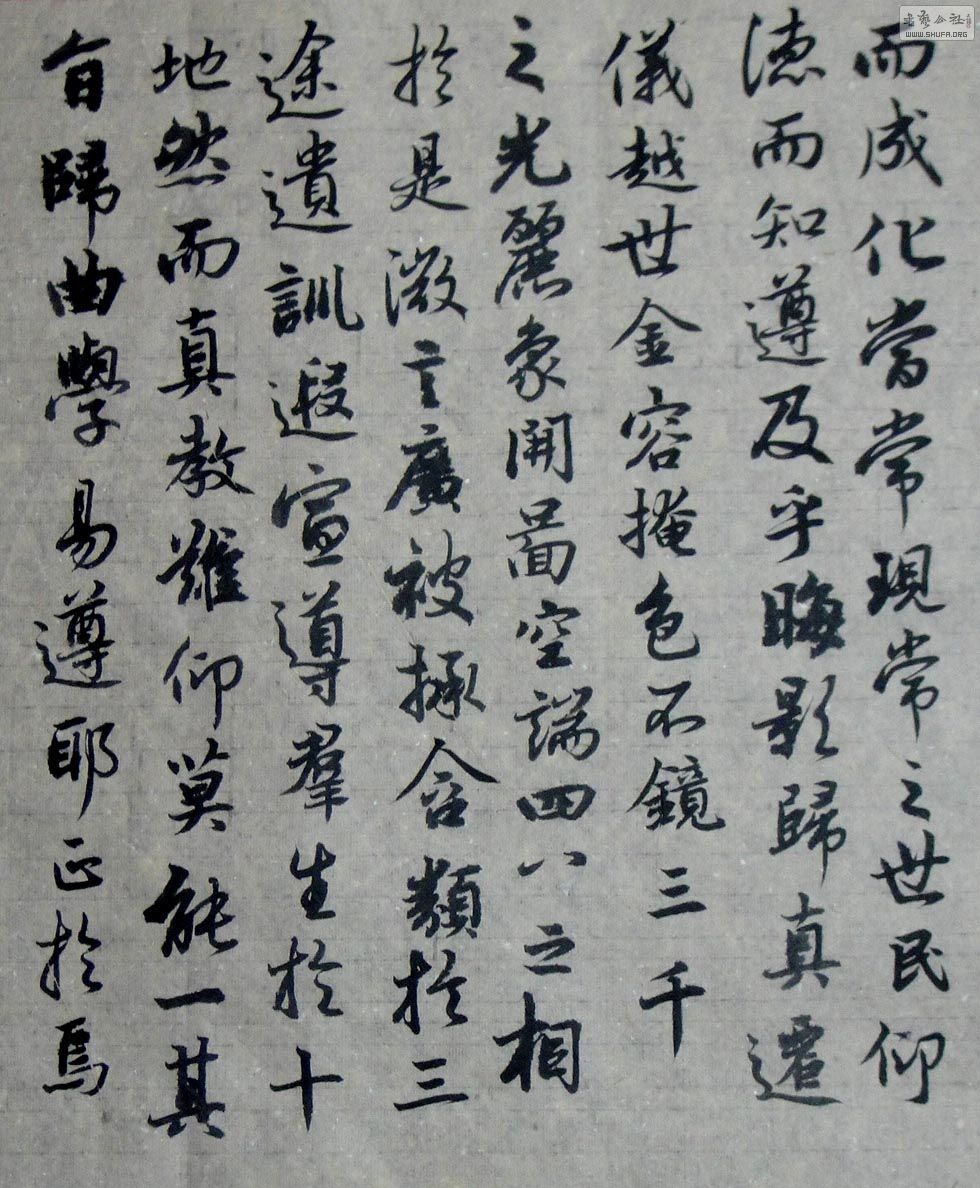 而成化當常現常之世民仰
德而知遵及乎晦影歸真遷
儀越世金容掩色不鏡三千
之光麗象開啚空端四八之相
於是微言廣被拯含類於三
途遺訓遐宣導羣生於十
地然而真教難仰莫能一其
旨歸曲學易遵耶正於焉
书艺公社
WWW.SHUFA.ORG